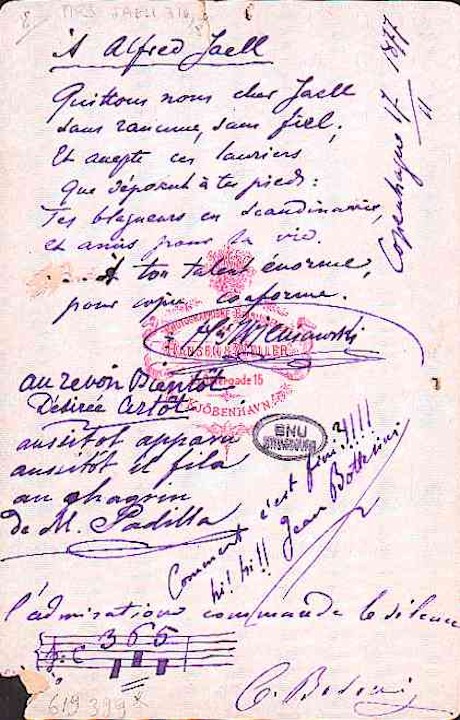 MRS JAELL 316
A Alfred Jaell
Quittons nous cher Jaell
sans rancune, sans fiel,
Et accepte ces lauriers
Que déposent à tes pieds:
Tes blagueurs en Scandinavie,
et amis pour la vie.
A ton talent énorme,
pour copie conforme.
Copenhague 17/11 1877
HANSEN & WELLER
gade 15
KJÖBENHAVN.
au revoir Bientôt
Désirée Artôt
aussitot apparu
aussitôt il fila
au chagrin
de M. Padilla
BNU
STRASBOURG
Comment c'est fini ?!!!
hi! hi!! Jean
l'admiration commande le silence
C 3 6 5
C.
619 399